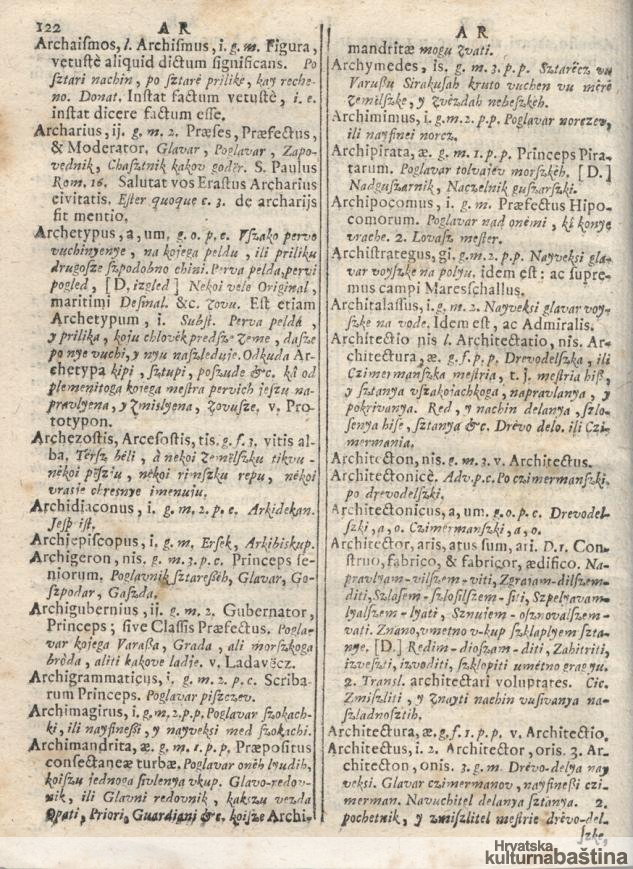 122 A R
Archaismos, l. Archismus, i. g. m. Figura,
vetustè aliquid dictum significans. Po
sztari nachin, po sztarè prilike, kay reche-
no. Donat. Instat factum vetustè, i. e.
instat dicere factum esse.
Archarius, ij. g. m. 2. Præses, Præfectus,
& Moderator. Glavar, Poglavar, Zapo-
vednik, Chasztnik kakov godèr. S. Paulus
Rom. 16. Salutat vos Erastus Archarius
civitatis. Ester quoque c. 3. de archarijs
fit mentio.
Archetypus, a, um, g. o. p. c. Vszako pervo
vuchinyenye, na kojega peldu, ili priliku
drugosze szpodobno chini. Perva pelda, pervi
pogled, [D, izgled] Nekoi vele Original,
maritimi Desmal. &c. zovu. Est etiam
Archetypum, i. Subst. Perva peldá,
y prilika, koju chlovèk predsze zeme, dasze
po nye vuchi, y nyu naszleduje. Odkuda Ar-
chetypa kipi, sztupi, poszude &c. ká od
plemenitoga kojega mestra pervich jeszu na-
pravlyena, y zmislyena, zovusze. v. Pro-
totypon.
Archezostis, Arcesostis, tis. g. f. 3. vitis al-
ba, Tèrsz bèli, á nekoi zemèlszku tikvu-
nèkoi pèsziu, nèkoi rimszku repu, nèkoi
vrasie chresnye imenuju.
Archidiaconus, i. g. m. 2. p. c. Arkidekan.
Jesp ist.
Archiepiscopus, i. g. m. Ersek, Arkibiskup.
Archigeron, nis. g. m. 3. p. c. Princeps se-
niorum. Poglavnik sztareßèh, Glavar, Go-
szpodar, Gaszda.
Archigubernius, ij. g. m. 2. Gubernator,
Princeps; sive Classis Præfectus. Pogla-
var kojega Varaßa, Grada, ali morszkoga
bròda, aliti kakove ladje. v. Ladavècz.
Archigrammaticus, i. g. m. 2. p. c. Scriba-
rum Princeps. Poglavar piszczev.
Archimagirus, i. g. m, 2. p. p. Poglavar szokach-
ki, ili nayfineßi, y nayveksi med szokachi.
Archimandrita, æ. g. m. 1. p. p. Præpositus
consectaneæ turbæ. Poglavar onèh lyudih,
koiszu jednoga sivlenya vkup. Glavo-redov-
nik, ili Glavni redovnik, kakszu vezda
Opati, Priori, Guardiani &c. koisze Archi-
A R
mandritæ mogu zvati.
Archymedes, is. g. m. 3. p. p. Sztarècz vu
Varußu Sirakusah kruto vuchen vu mère
zemèlszke, y zvèzdah nebeszkèh.
Archimimus, i. g. m. 2. p. p. Poglavar norczev,
ili nayfinei norcz.
Archipirata, æ. g. m. 1. p. p. Princeps Pira-
tarum. Poglavar tolvajev morszkèh. [D.]
Nadguszarnik, Naczelnik guszarski.
Archipocomus, i. g. m. Præfectus Hipo-
comorum. Poglavar nad onèmi, kí konye
vrache. 2. Lovasz mester.
Archistrategus, gi. g. m. 2. p. p. Nayveksi gla-
var voyszke na polyu. idem est: ac supre-
mus campi Mareschallus.
Architalassus, i. g. m. 2. Nayveksi glavar voy-
szke na vode. Idem est, ac Admiralis.
Architectio nis l. Architectatio, nis. Ar-
chitectura, æ. g. f. p. p. Drevodelszka, ili
Czimermanszka mestria, t. j. mestria hiß,
y sztanya vszakojachkoga, napravlanya, y
pokrivanya. Red, y nachin delanya, szlo-
senya hise, sztanya &c. Drèvo delo. ili Czi-
mermania.
Architecton, nis. g. m. 3. v. Architectus.
Architectonicè. Adv. p. c. Po czimermanszki.
po drevodelszki.
Architectonicus, a, um. g. o. p. c. Drevodel-
szki, a, o. Czimermanszki, a, o.
Architector, aris, atus sum, ari. D. 1. Con-
struo, fabrico, & fabricor, ædifico. Na-
pravlyam-vilszem-viti, Zgraiam-dilszem-
diti, Szlosem-szlosilszem-siti, Szpelyavam-
lyalszem-lyati, Sznujem-osznovalszem-
vati. Znano, vmetno v-kup szklaplyem szta-
nye. [D.] Redim-dioszam-diti, Zahitriti,
izvesti, izvoditi, szklopiti umétno gragyu.
2. Transl. architectari voluptates. Cic.
Zmiszliti, y znayti nachin vusivanya na-
szladnosztih.
Architectura, æ. g. f. 1. p. p. v. Architectio.
Architectus, i. 2. Architector, oris. 3. Ar-
chitecton, onis. 3. g. m. Drèvo-delya nay
veksi. Glavar czimermanov, nayfineßi czi-
merman. Navuchitel delanya sztanya. 2.
pochetnik, y zmiszlitel mestrie drèvo-del-
szke,
Hrvatska
kulturnabaština